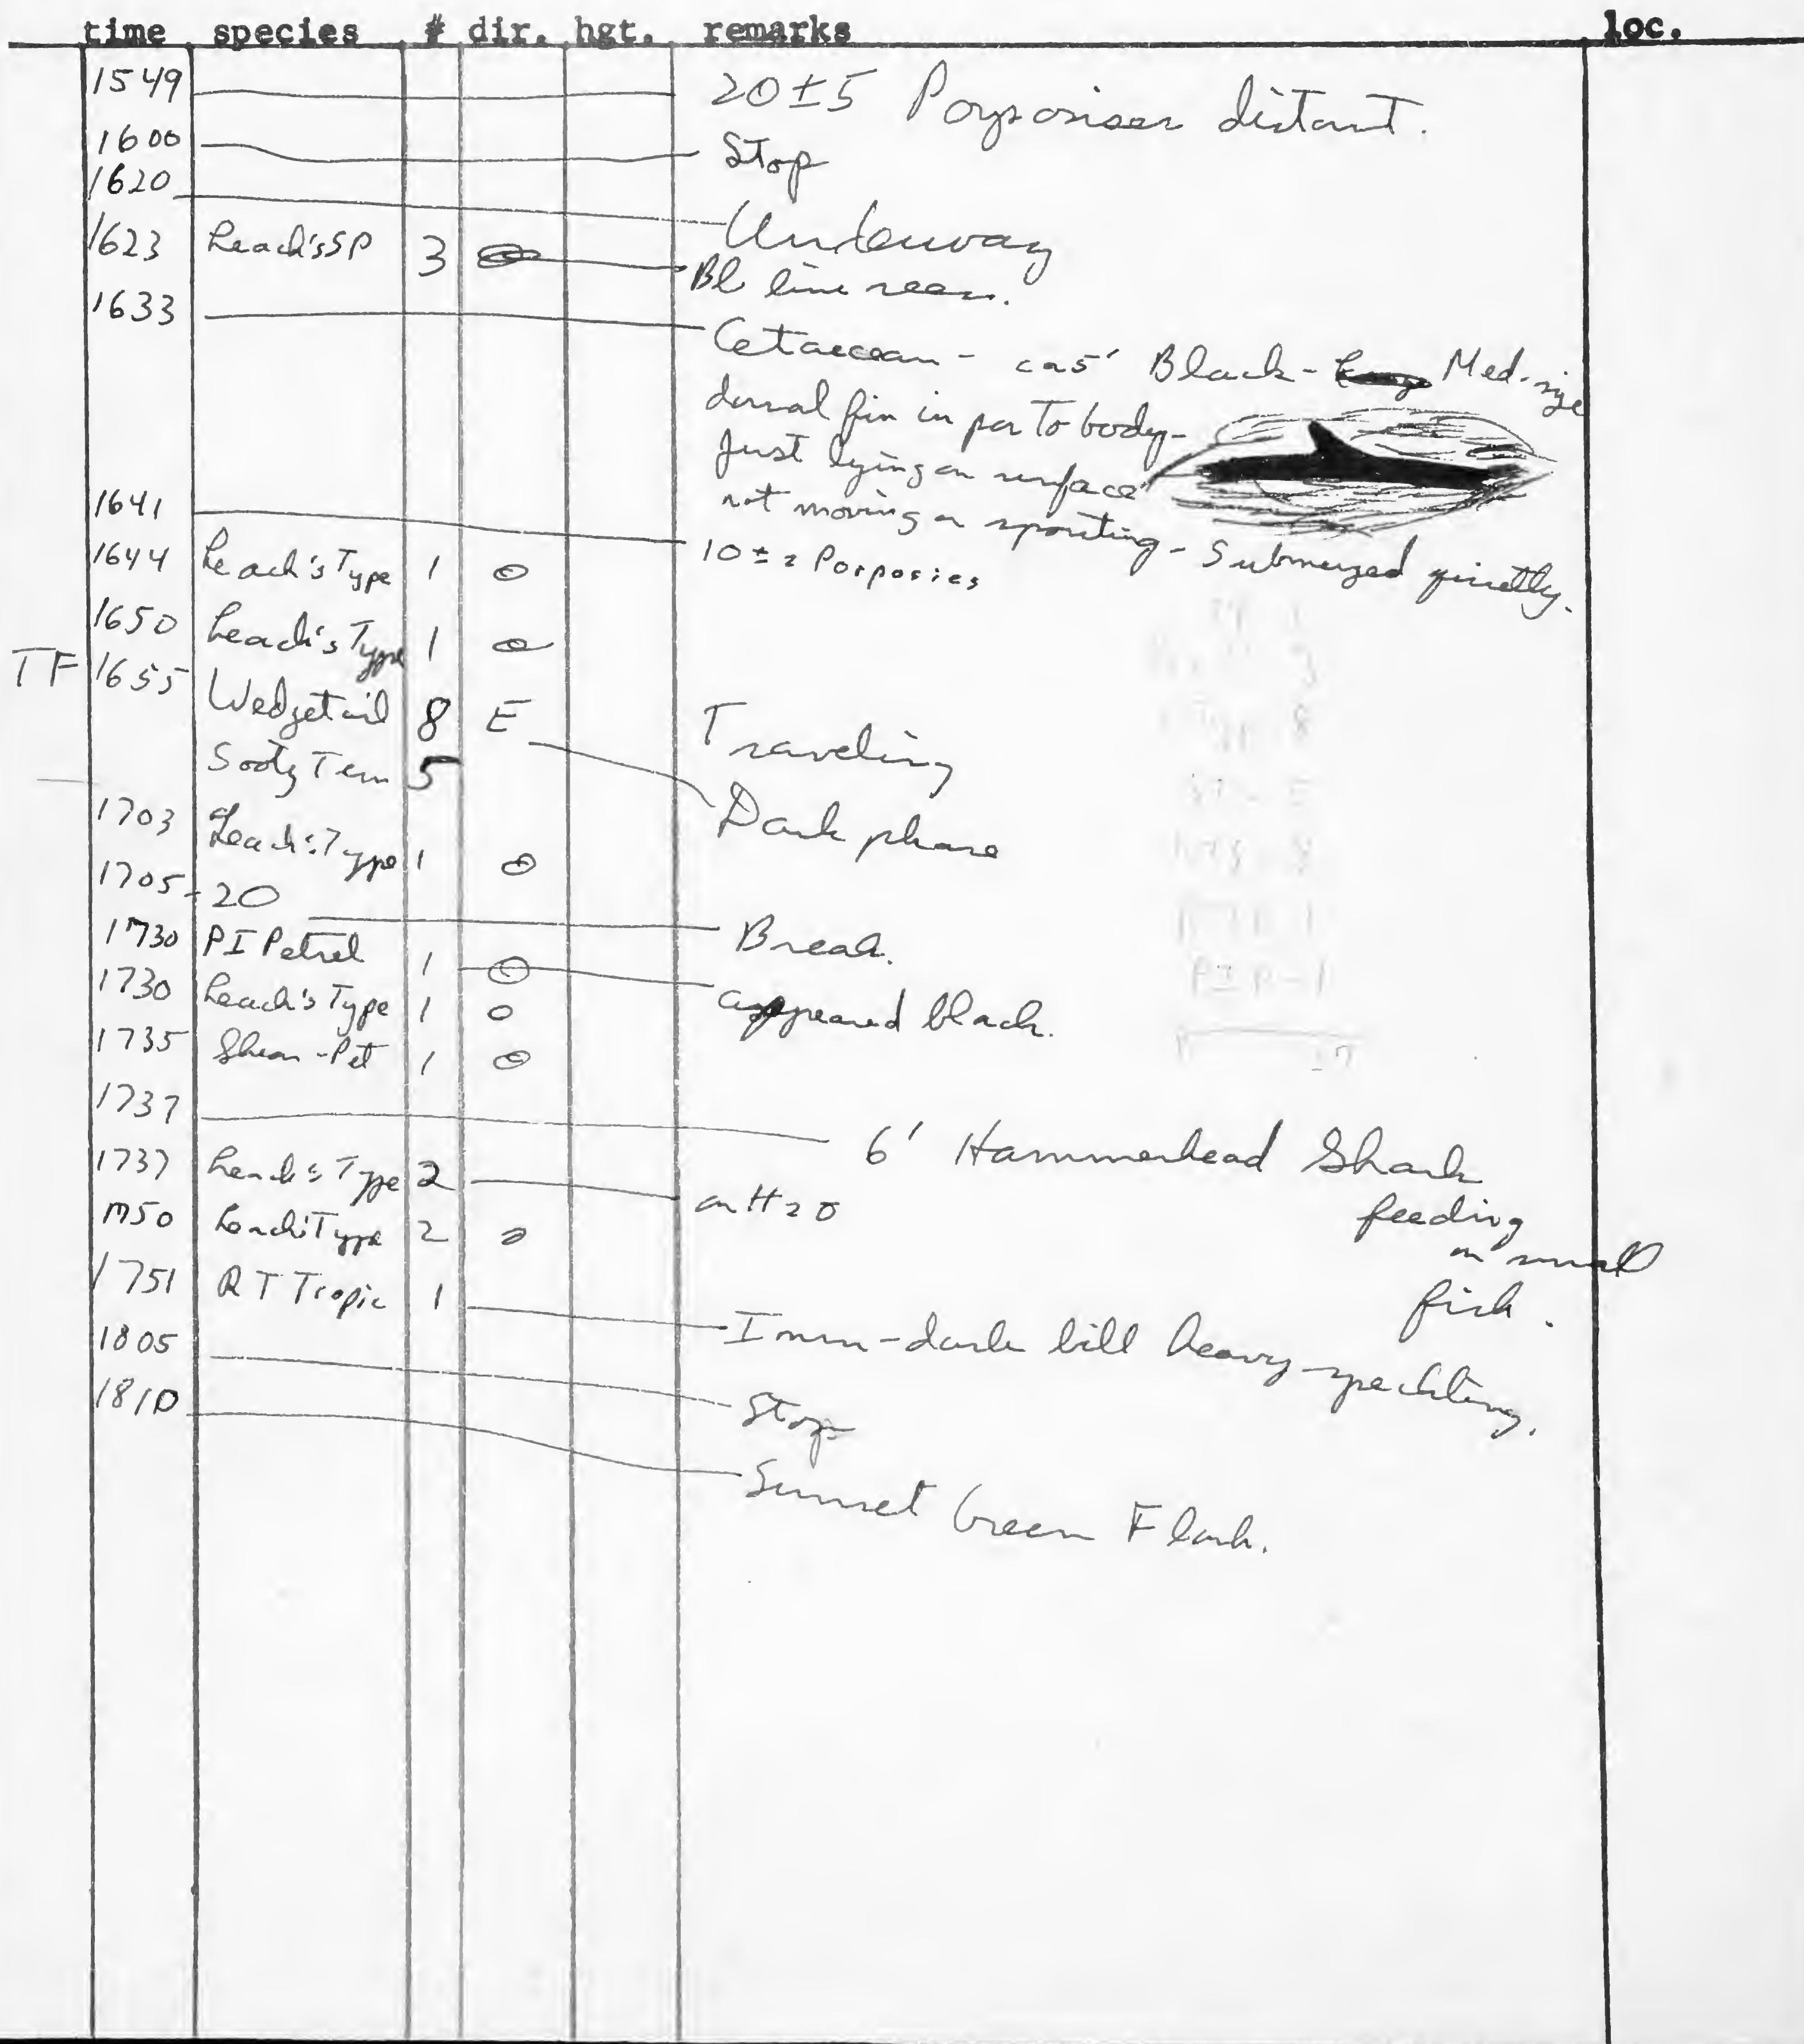 time species # dir. hgt. remarks loc.
1549 20±5 Porpoises distant.
1600 Stop
1620 Underway
1623 Leach's SP 3 Bl line seen.
1633 Cetacean - ca 5' Black - Med. size
dorsal fin in por to body -
Just lying on surface
not moving or spouting - Submerged quietly.
1641 10±2 Porposies
1644 Leach's Type 1
1650 Leach's Type 1
TF 1655 Wedgetail 8 E Traveling
Dark phase
Sooty Tern 5
1703 Leach's Type 1
1705-20 Break.
1730 PI Petrel 1 appeared black.
1730 Leach's Type 1
1735 Shear-Pet 1
1737 6' Hammerhead Shark
feeding
on small
fish.
1737 Leach's Type 2 on H2O
1750 Leach's Type 2
1751 RT Tropic 1 Imm - dark bill heavy speckling.
1805 Stop
1810 Sunset Green Flash.